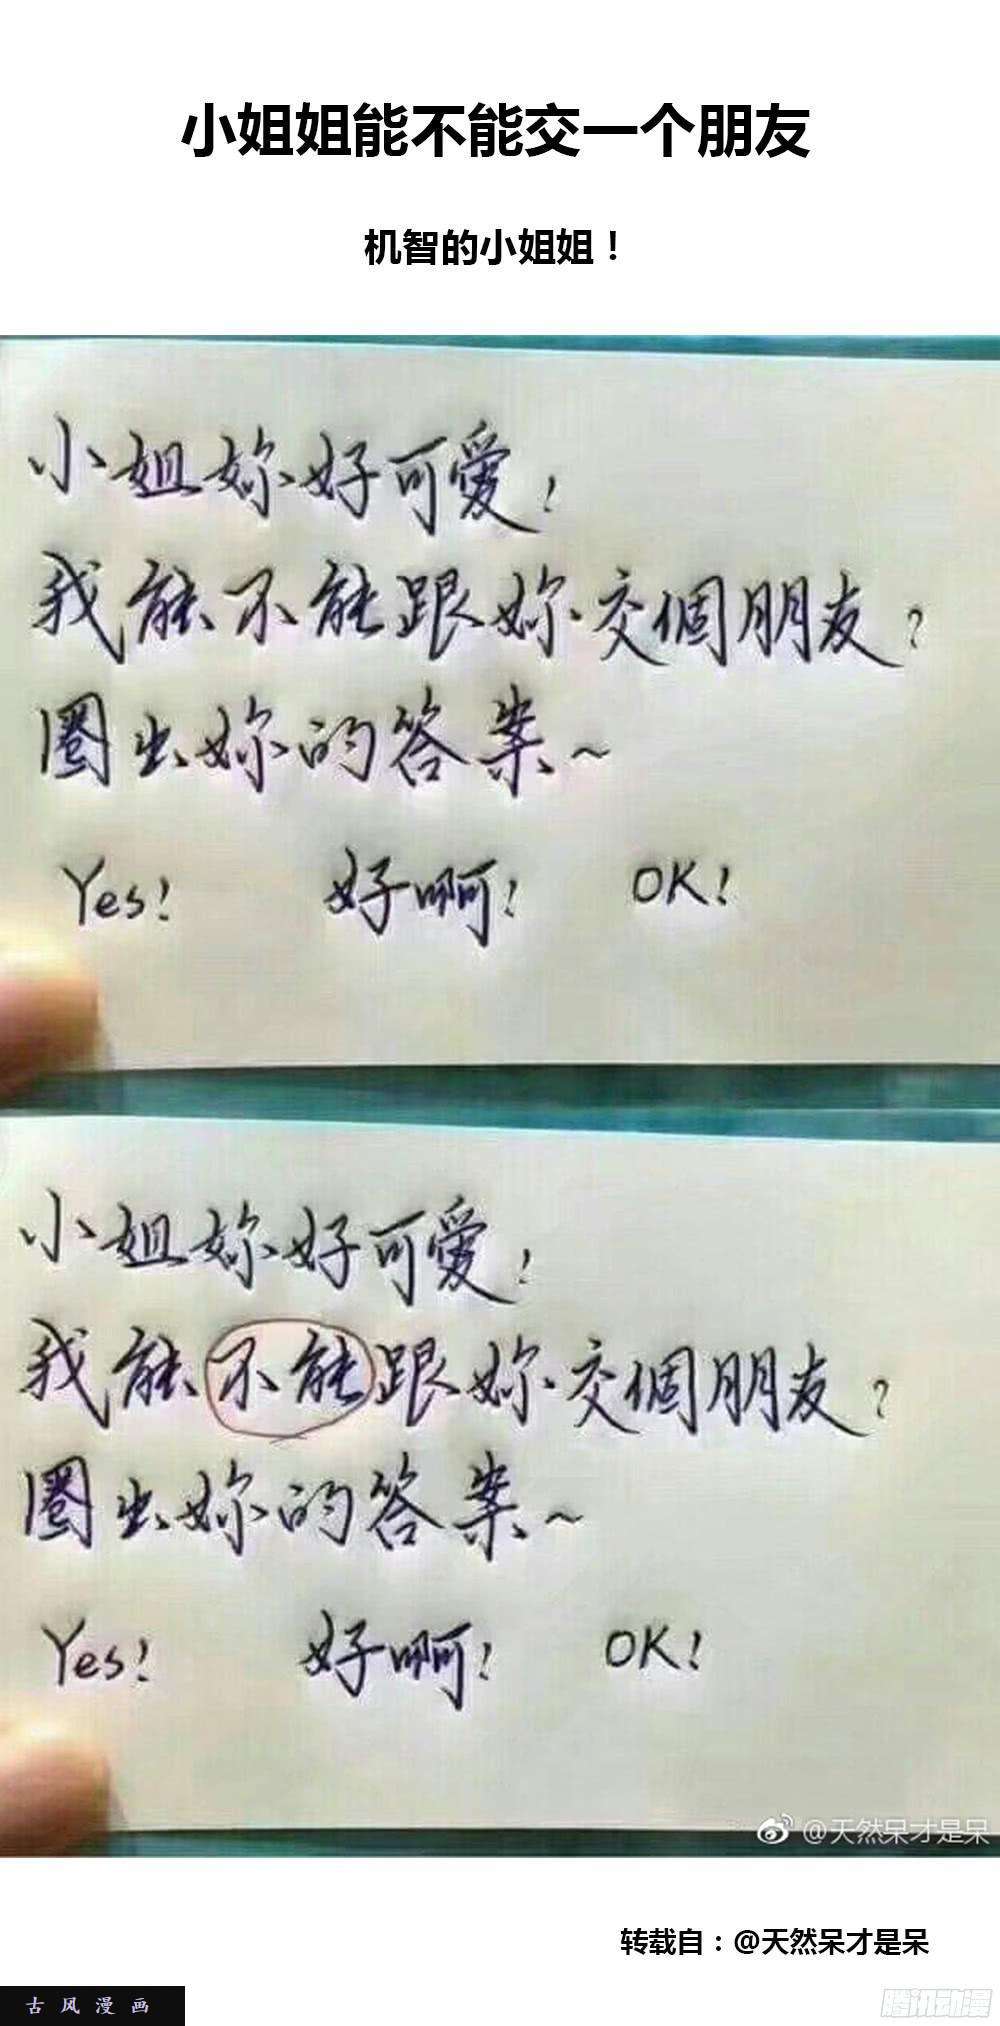 小姐姐能不能交一个朋友
机智的小姐姐！
小姐妳好可爱！
我能不能跟妳交個朋友？
圈出妳的答案~
Yes! 好啊! OK!
小姐妳好可爱！
我能不能跟妳交個朋友？
圈出妳的答案~
Yes! 好啊! OK!
@天然呆才是呆
转载自：@天然呆才是呆
古风漫画
腾讯动漫